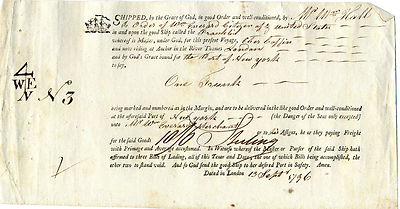 SHIPPED, by the Grace of God, in good Order and well-conditioned, by Mr Wm Hall
the Order of Wm Everard Citizen of ye United States
in and upon the good Ship called the
whereof is Master, under God, for this present Voyage,
and now riding at Anchor in the River Thames London
and by God's Grace bound for the Port of New York
to say,
One Trunk
4
WE
N
N 3
being marked and numbered as in the Margin, and are to be delivered in the like good Order and well-conditioned
at the aforesaid Port of New York (the Danger of the Seas only excepted)
unto Mr Wm Everard Merchant or to his Assigns, he or they paying Freight
for the said Goods 10/6 Sterling
with Primage and Average accustomed. In Witness whereof the Master or Purser of the said Ship hath
affirmed to three Bills of Lading, all of this Tenor and Date; the one of which Bills being accomplished, the
other two to stand void. And so God send the good Ship to her desired Port in Safety. Amen.
Dated in London 13 Sept 1796